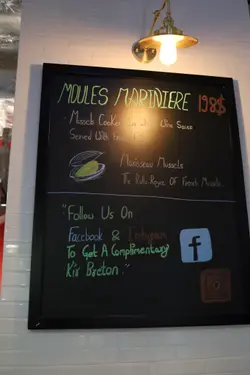 MOULES MARINIERE 198$
Mussels Cooked in White Wine Sauce
Served With
Mussels
The Rolls Royce Of French Mussels
"Follow Us On
Facebook & Instagram
To Get A Complimentary
Kir Breton."
f